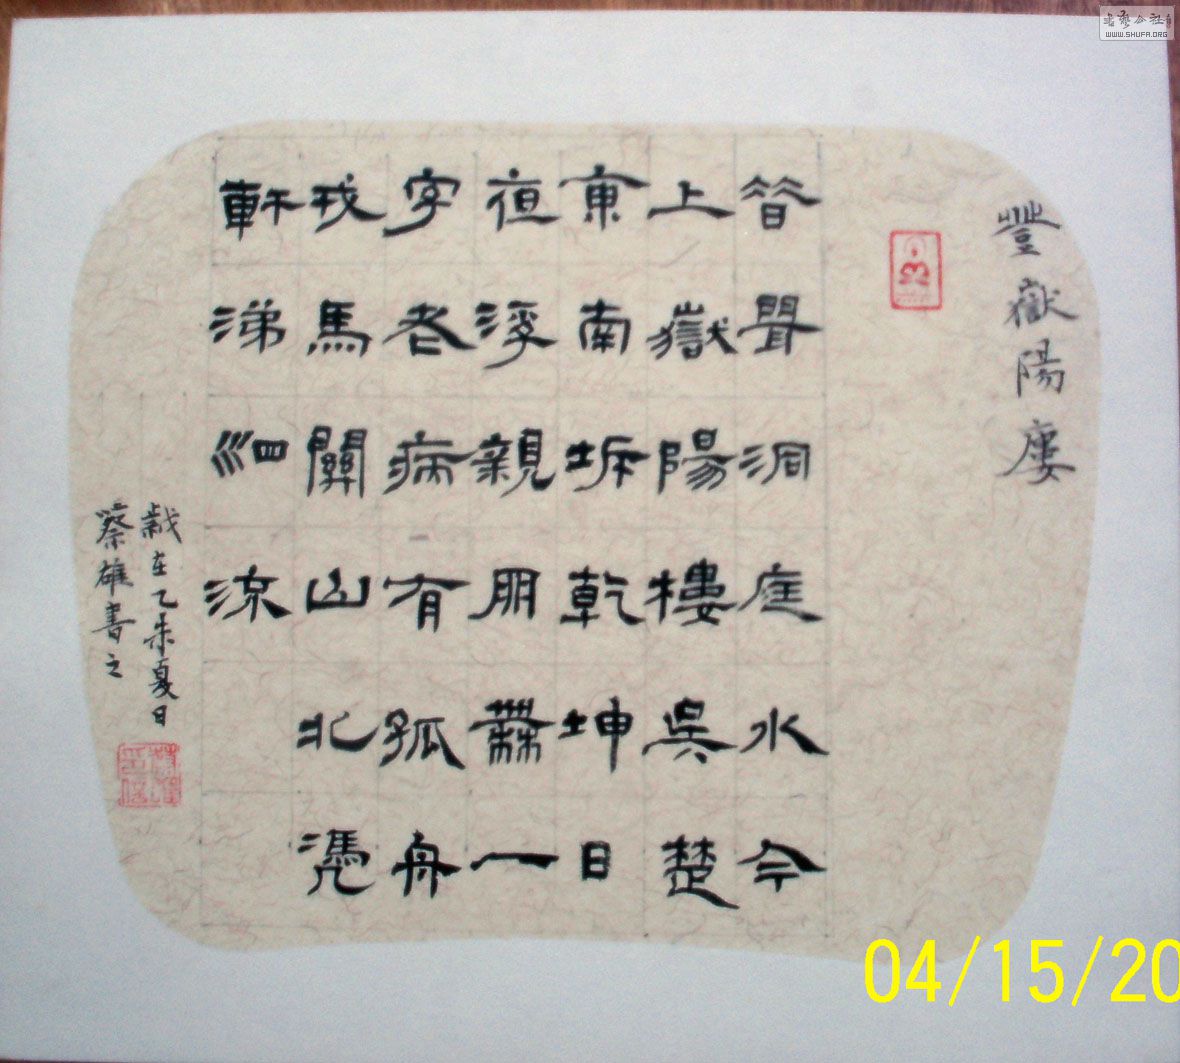 豐嶽陽廔
昔聞洞庭水今
上嶽陽樓吳楚
東南坼乾坤日
夜浮親朋無一
字老病有孤舟
戎馬關山北憑
軒涕泗流
歲在乙未夏日
蔡雄書之
书艺公社
WWW.SHUFA.ORG
04/15/20